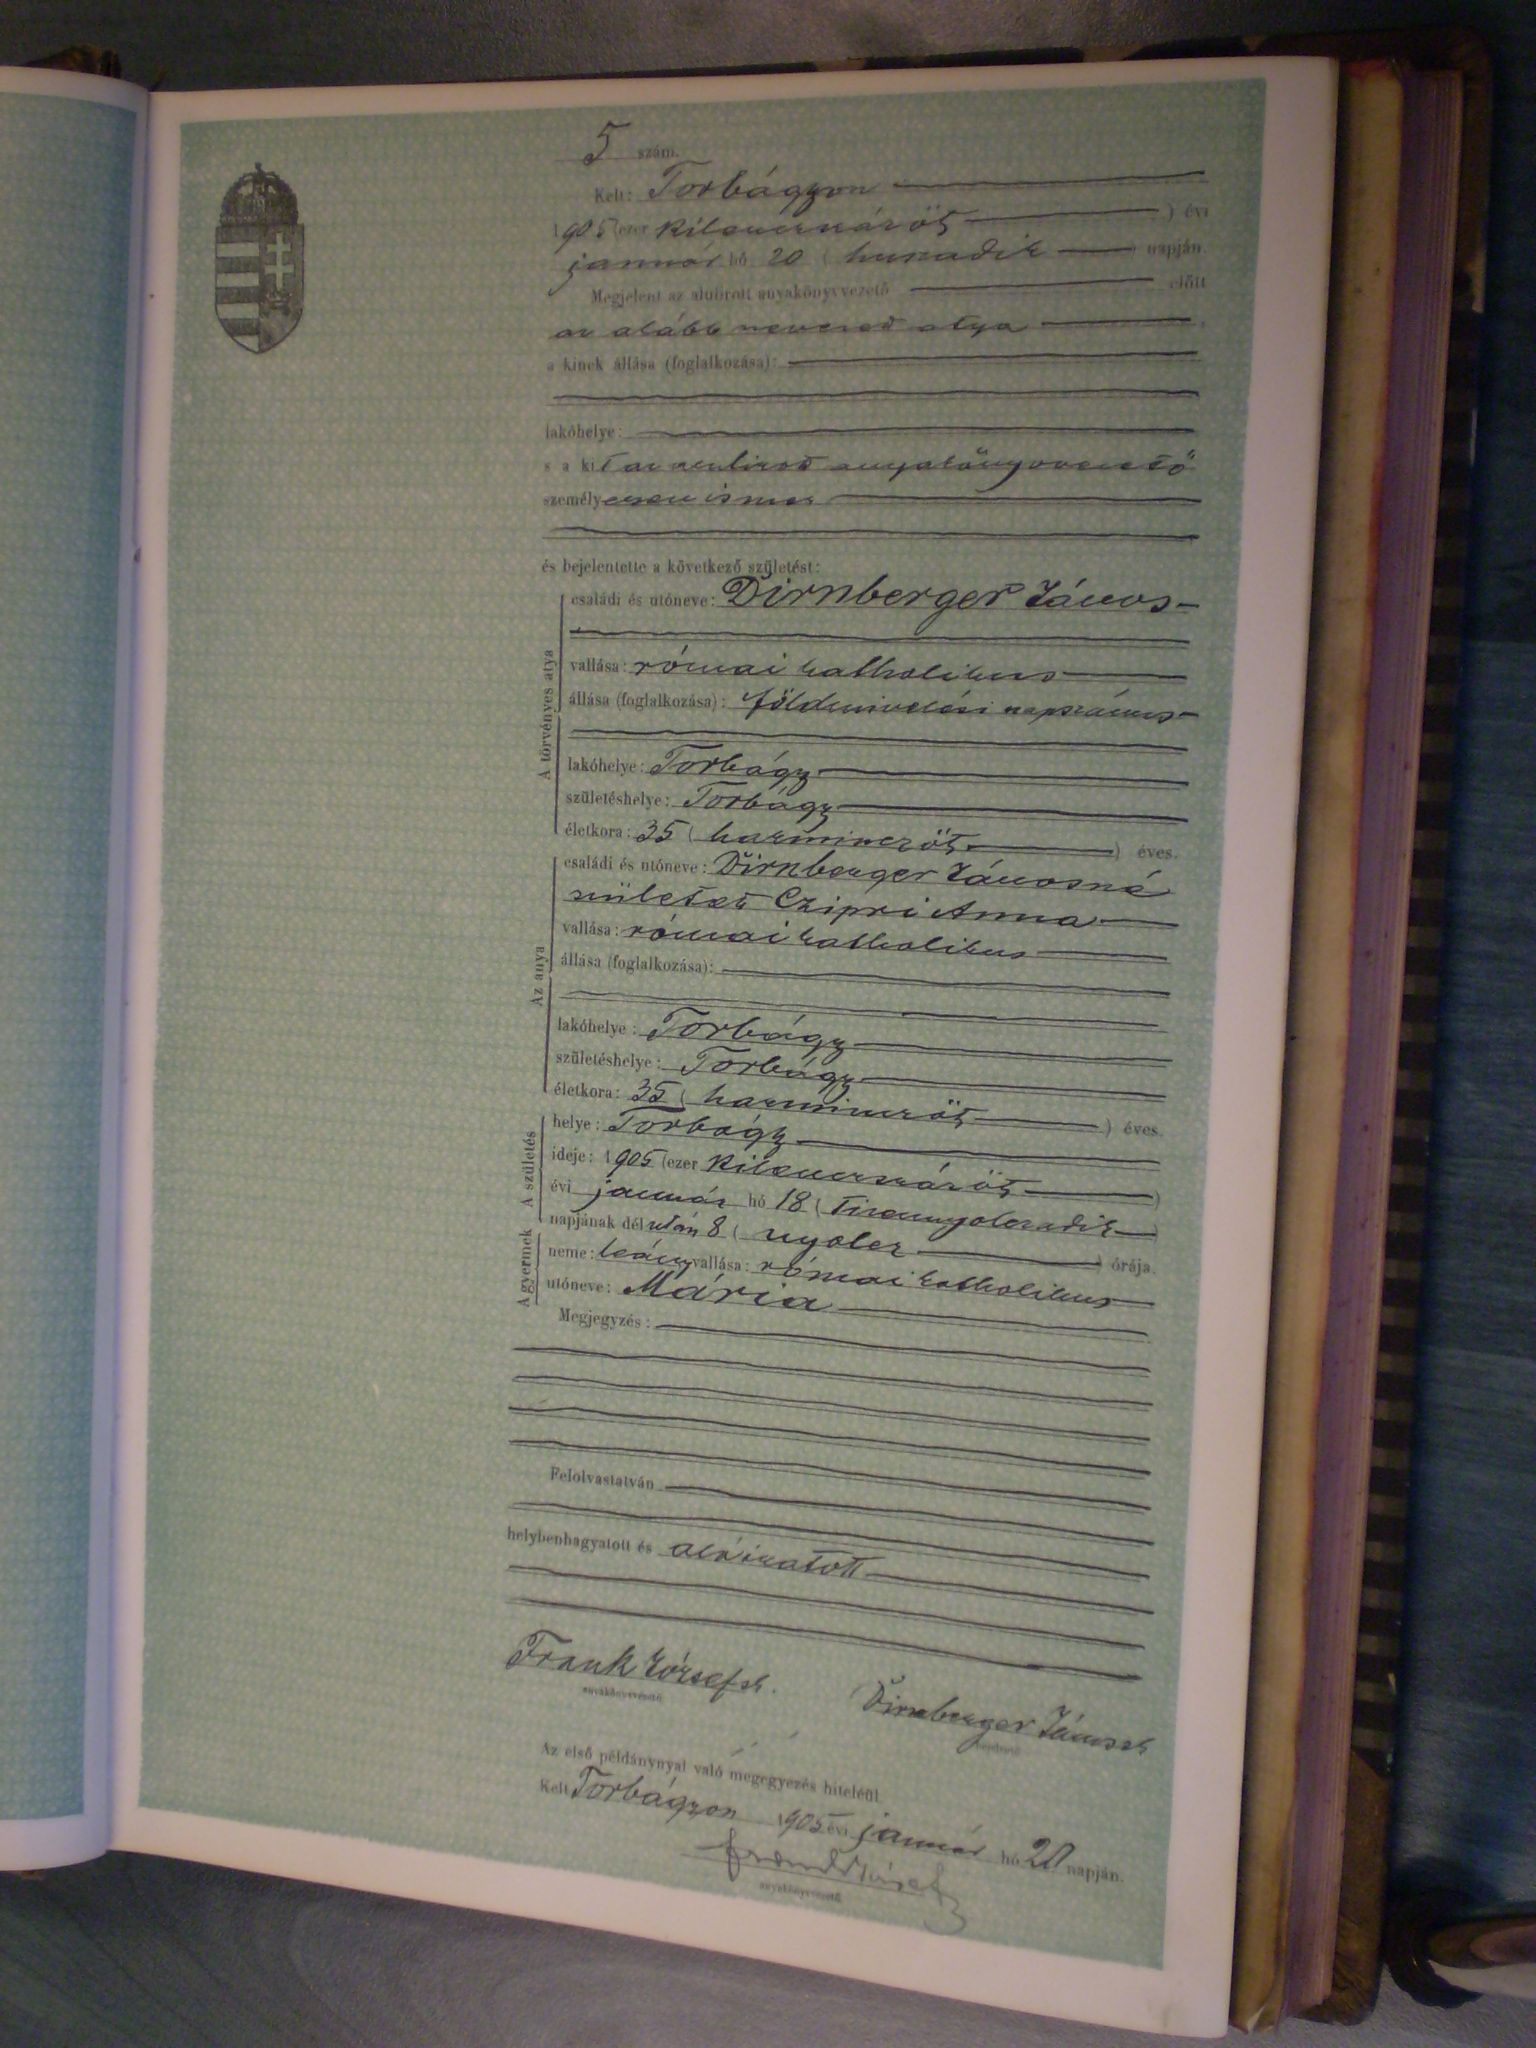 5 szám.
Kelt: Torbágyon
1905 (ezer kilenczszázöt ) évi
január hó 20 ( huszadik ) napján.
Megjelent az alulirott anyakönyvvezető előtt
az alább nevezett atya ,
a kinek állása (foglalkozása):
lakóhelye:
s a kit az anyakönyvvezető
személyesen ismer
és bejelentette a következő születést:
A törvényes atya
családi és utóneve: Dirnberger János
vallása: római katholikus
állása (foglalkozása): földmivelési napszámos
lakóhelye: Torbágy
születéshelye: Torbágy
életkora: 35 ( harminczöt ) éves.
Az anya
családi és utóneve: Dirnberger Jánosné
született Czipri Anna
vallása: római katholikus
állása (foglalkozása):
lakóhelye: Torbágy
születéshelye: Torbágy
életkora: 35 ( harminczöt ) éves.
A születés
helye: Torbágy
ideje: 1905 (ezer kilenczszázöt )
évi január hó 18 ( tizennyolczadik )
napjának délután 8 ( nyolcz ) órája.
A gyermek
neme: leány vallása: római katholikus
utóneve: Mária
Megjegyzés:
Felolvastatván
helybenhagyatott és aláiratott
Frank József sk.
anyakönyvvezető
Dirnberger János sk
bejelentő
Az első példánynyal való megegyezés hiteléül
Kelt Torbágyon 1905 évi január hó 20 napján.
Frank József
anyakönyvvezető